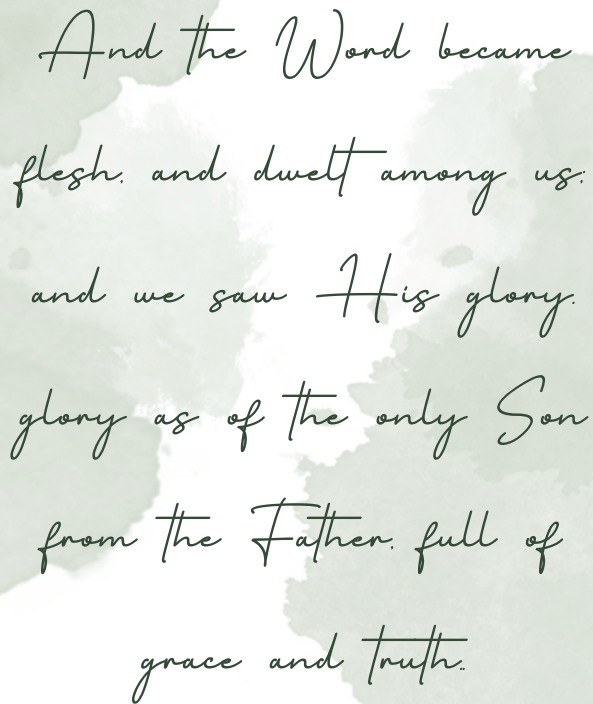 And the Word became
flesh, and dwelt among us;
and we saw His glory,
glory as of the only Son
from the Father, full of
grace and truth..